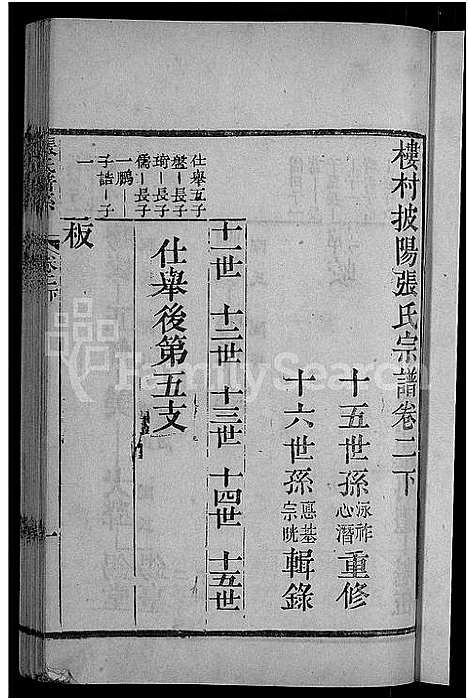 樓村披陽張氏宗譜卷二下
十五世孫泳祚心潛重修
十六世孫惠基宗晄輯錄
十一世 十二世 十三世 十四世 十五世
仕舉後第五支
仕舉五子
盤一長子
琦一長子
儒一長子
一鵬一子
子誥一子
一
板
FamilySearch